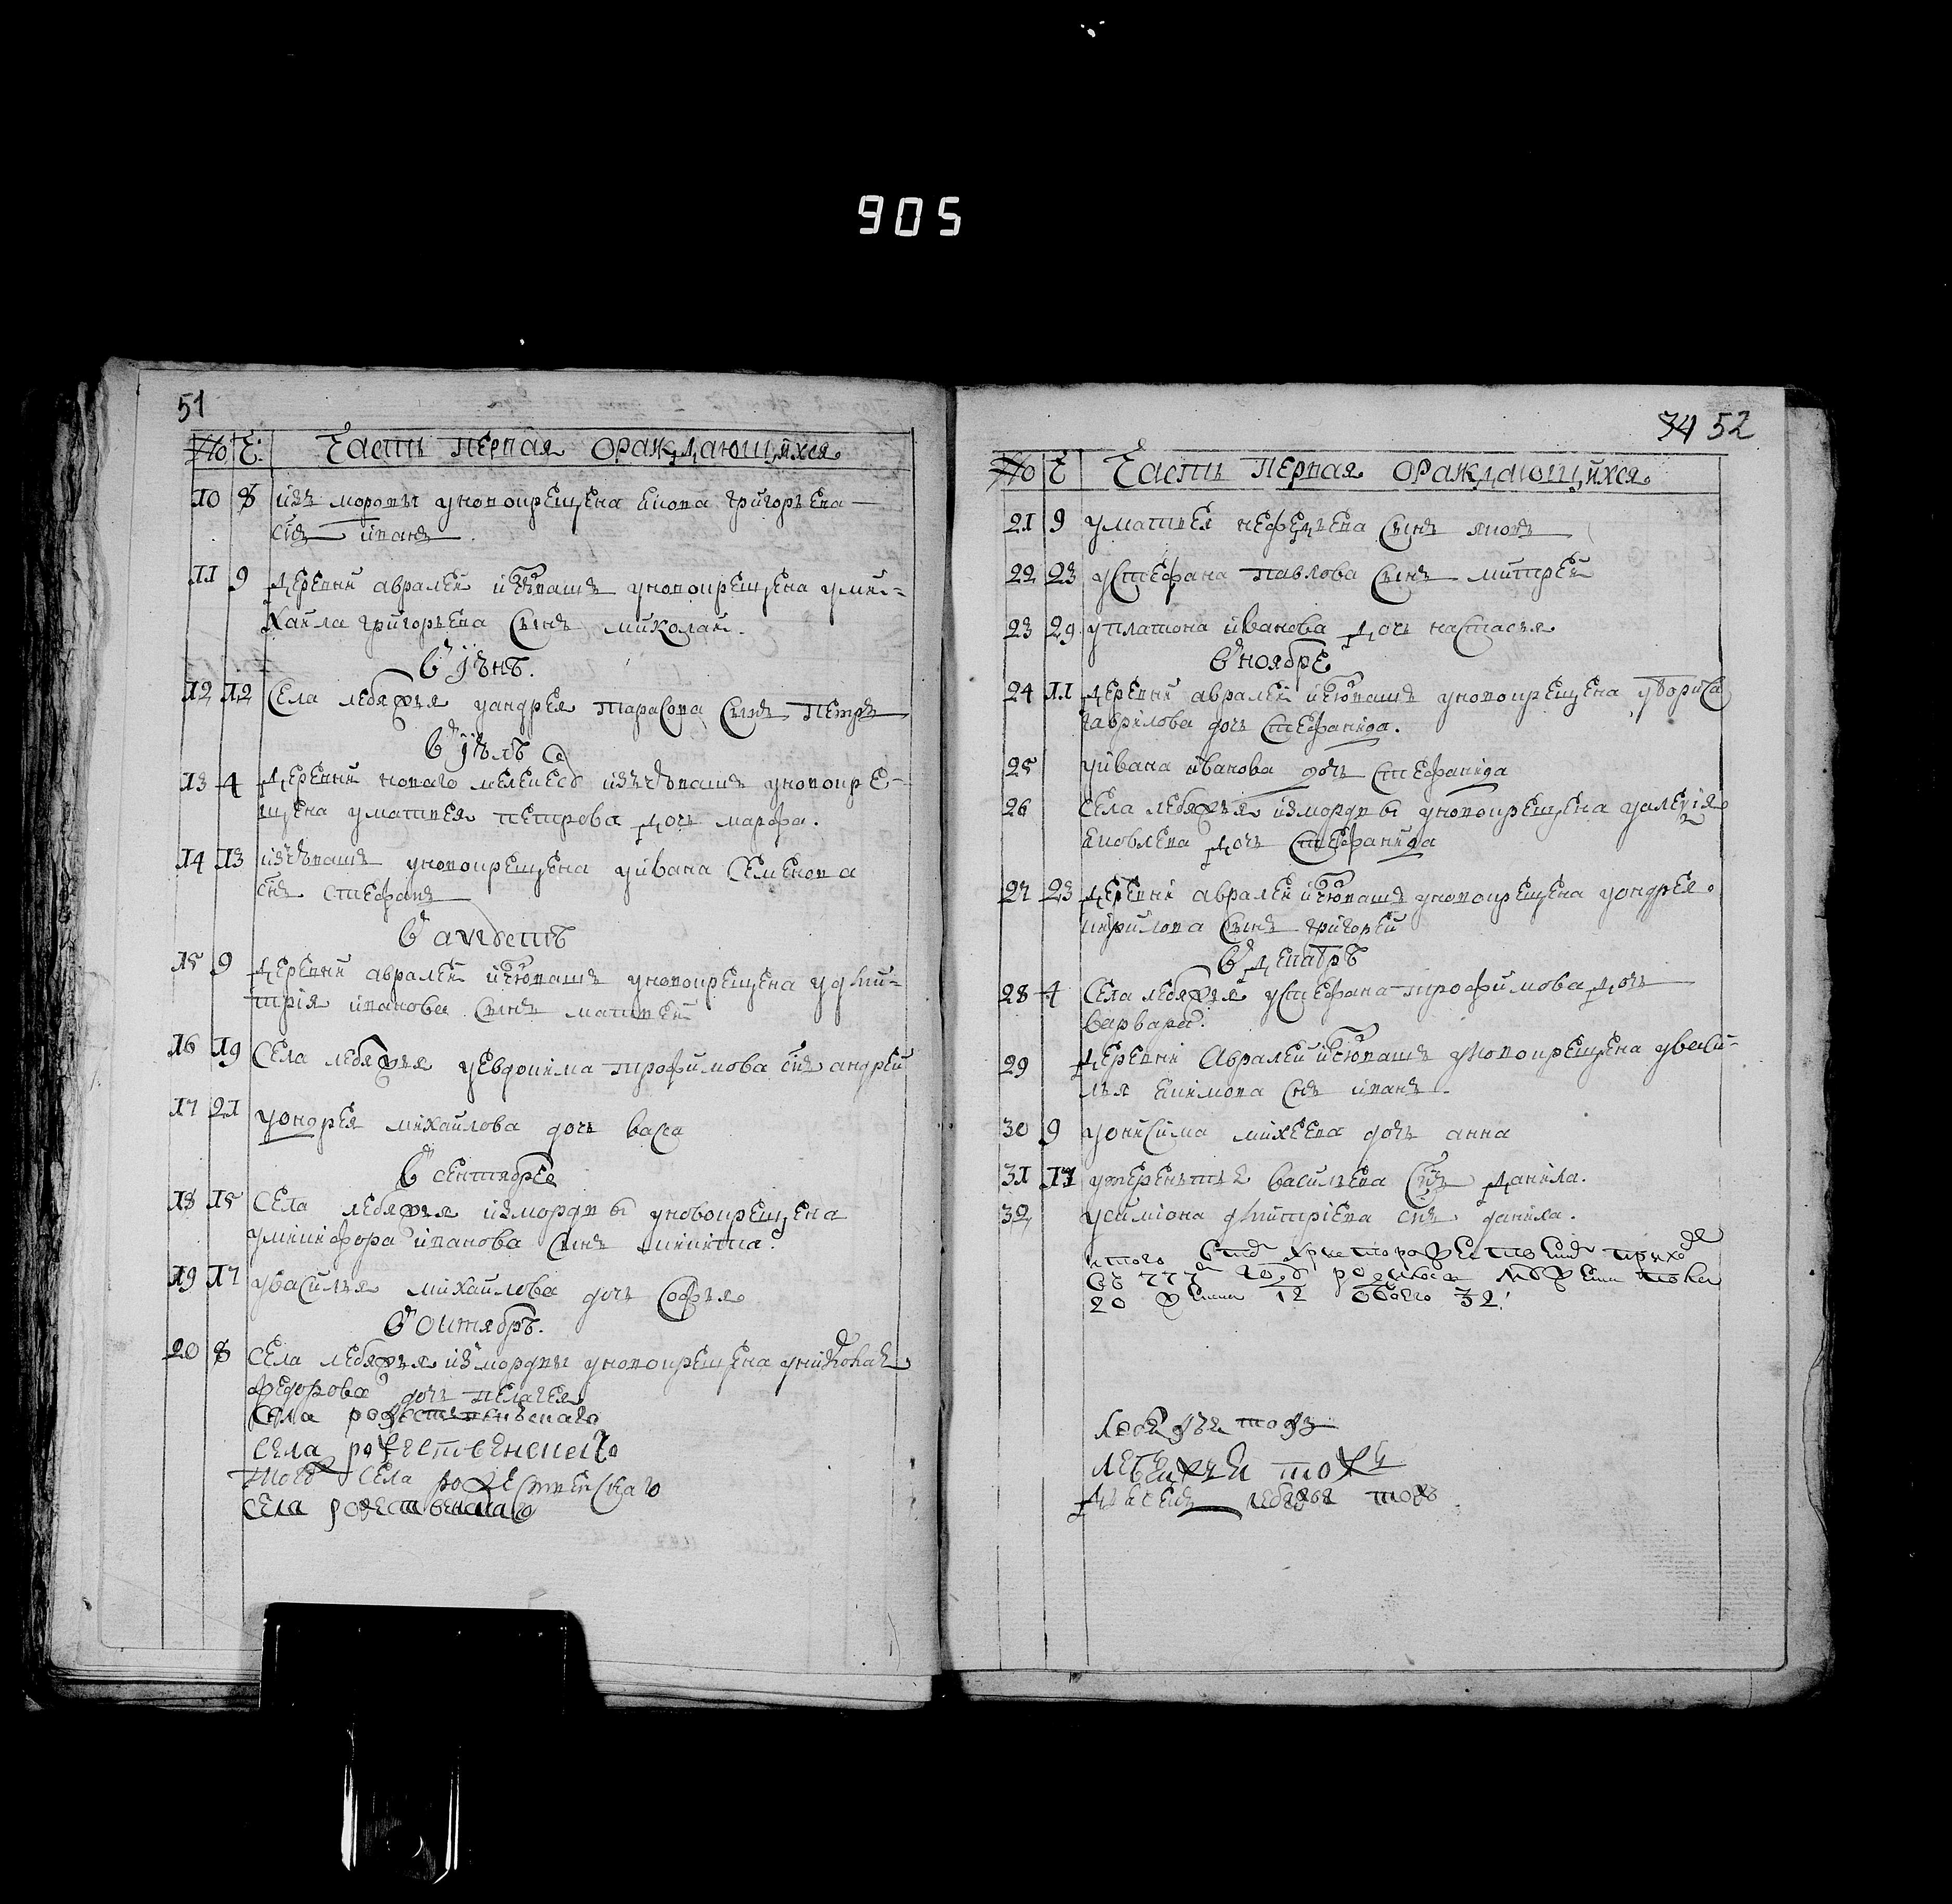 905
51
No Ч: Часть первая ораждающихся
10 8 изъ мордвы уновокрещена якова григорьева
снъ иванъ
11 9 деревни авралей изчювашъ уновокрещена уми-
хаила григорьева сынъ миколай.
Въ іюнѣ.
12 12 Села лебяжья уандрея тарасова сынъ петръ
Въ іюлѣ
13 4 деревни новаго мелекесѣ изъчювашъ уновокре-
щена уматвея петрова дочь марфа.
14 13 изъчювашъ уновокрещена уивана семенова
снъ стефанъ
Въ августѣ
15 9 деревни авралей изчювашъ уновокрещена удми-
трія иванова сынъ матвей
16 19 Села лебяжья уевдокима трофимова снъ андрей
17 21 уондрея михайлова дочь васса
Въ сентябре
18 15 Села лебяжья измордвы уновокрещена
уникифора иванова сынъ никита.
19 17 увасилья михайлова дочь софья
Въ октябрѣ.
20 8 Села лебяжья измордвы уновокрещена униколая
федорова дочь пелагея
села
села рожественскаго
тогожъ села рожественскаго
села рожественскаго
74 52
No Ч Часть первая ораждающихся
21 9 уматвея нефедьева сынъ яковъ
22 23 устефана павлова сынъ митрей
23 29 уплатона иванова дочь настасья
Въ ноябре
24 11 деревни авралей изчювашъ уновокрещена убориса
гаврилова дочь стефанида.
25 уивана иванова дочь стефанида
26 Села лебяжья измордвы уновокрещена уалексія
яковлева дочь стефанида
27 23 деревни авралей изчювашъ уновокрещена уондрея
кирилова сынъ григорей
Въ декабрѣ
28 4 Села лебяжья устефана трофимова дочь
варвара.
29 деревни авралей изчювашъ уновокрещена уваси-
лья екимова снъ иванъ.
30 9 уонисима михеева дочь анна
31 17 утерентья васильева снъ данила.
32 усимiона дмитріева снъ данила.
итого христорожественск приходе
въ 777 году родилось мужеска пола
20 женска 12 обоего 32
лебяжья тожъ
лебяжья тожъ
лебяжья тожъ